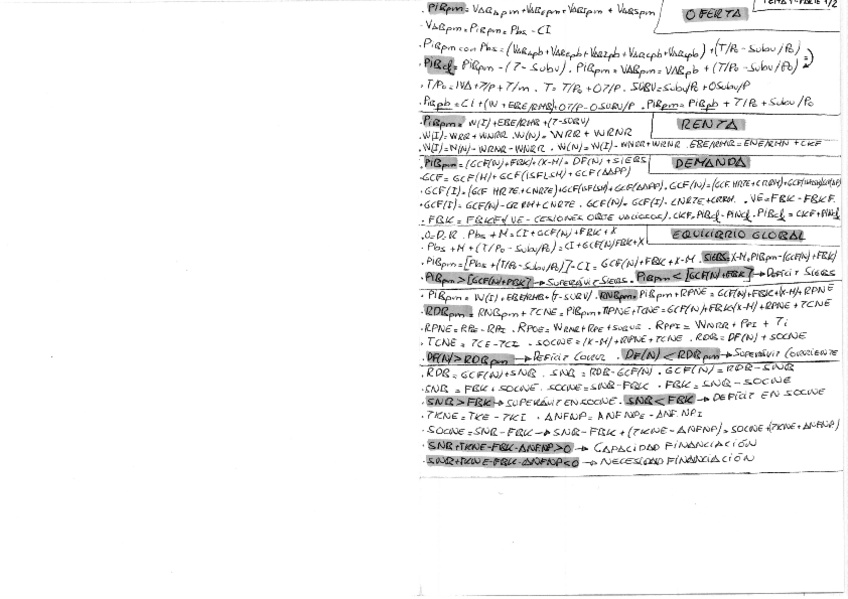 PiBpm = VABApm + VABEpm + VABIpm + VABSpm
OFERTA
VABpm = PiBpm = Pbs - CI
PiBpm con Pbs = (VABApb + VABEpb + VABIpb + VABCpb + VABSpb) + (T/Po - Subv/Po)
PiBcf = PiBpm - (T - Subv). PiBpm = VABpm = VABpb + (T/Po - Subv/Po)
T/Po = IVA + T/P + T/m. T = T/Po + OT/P. SUBV = Subv/Po + OSubv/P
PiBpb = CI + (W + EBE/RMB) + OT/P - OSUBV/P. PiBpm = PiBpb + T/Po + Subv/Po
PiBpm = W(I) + EBE/RMB + (T - SUBV)
RENTA
W(I) = WRR + WNRR. W(N) = WRR + WRNR
W(I) = W(N) - WRNR - WNRR. W(N) = W(I) - WNRR + WRNR. EBE/RMB = ENE/RMN + CKF
PiBpm = (GCF(N) + FBK) + (X-M) = DF(N) + SIEBS
DEMANDA
GCF = GCF(H) + GCF(ISFLSH) + GCF(AAPP)
GCF(I) = GCF(N) - CRRM + CNRTE. GCF(N) = GCF(I) - CNRTE + CRRM. VE = FBK - FBKF.
O = D. R. Pbs + M = CI + GCF(N) + FBK + X
EQUILIBRIO GLOBAL
Pbs + M + (T/Po - Subv/Po) = CI + GCF(N) FBK + X
PiBpm = [Pbs + (T/Po - Subv/Po)] - CI = GCF(N) + FBK + X - M. SIEBS = X-M = PiBpm - (GCF(N) + FBK)
PiBpm > [GCF(N) + FBK] → SUPERÁVIT SIEBS. PiBpm < [GCF(N) + FBK] → DÉFICIT SIEBS
PiBpm = W(I) + EBE/RMB + (T - SUBV). RNBpm = PiBpm + RPNE = GCF(N) + FBK + (X-M) + RPNE
RDBpm = RNBpm + TCNE = PiBpm + RPNE + TCNE = GCF(N) + FBK (X-M) + RPNE + TCNE
RPNE = RPE - RPI. RPDE = WRNR + RPE + SUBVE. RPPI = WNRR + PPI + Ti
TCNE = TCE - TCI. SOCNE = (X-M) + RPNE + TCNE. RDB = DF(N) + SOCNE
DF(N) > RDBpm → DÉFICIT CCORR. DF(N) < RDBpm → SUPERÁVIT CCORRIENTE
RDB = GCF(N) + SNB. SNB = RDB - GCF(N). GCF(N) = RDB - SNB
SNB = FBK + SOCNE. SOCNE = SNB - FBK. FBK = SNB - SOCNE
SNB > FBK → SUPERÁVIT EN SOCNE. SNB < FBK → DÉFICIT EN SOCNE
TKNE = TKE - TKI. ANFNP = ANFNPE - ANFNPI
SOCNE = SNB - FBK → SNB - FBK + (TKNE - ANFNP) = SOCNE + (TKNE + ANFNP)
SNB + TKNE - FBK - ANFNP > 0 → CAPACIDAD FINANCIACIÓN
SNB + TKNE - FBK - ANFNP < 0 → NECESIDAD FINANCIACIÓN